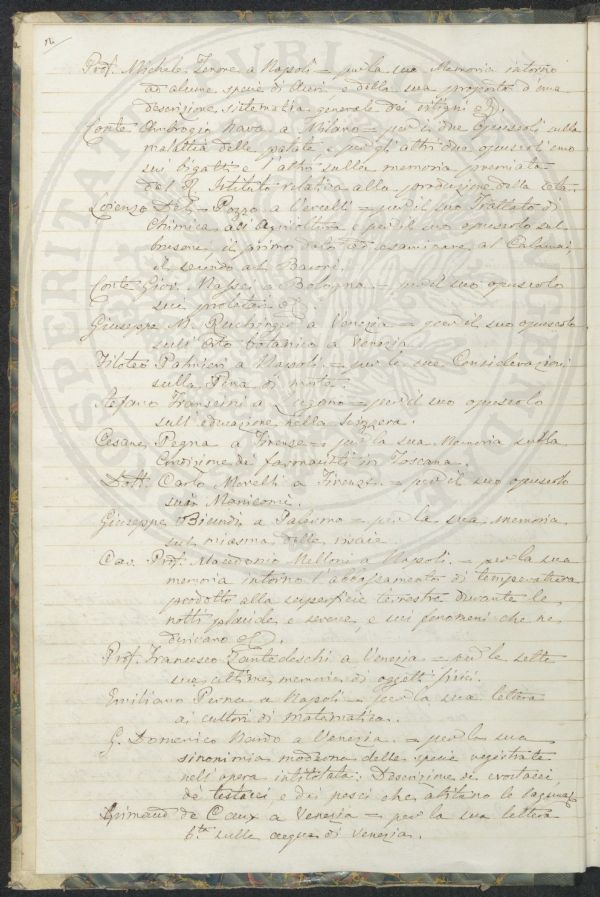 Prof. Michele Tenore a Napoli = per la sua Memoria intorno
ad alcune specie di Aceri e della sua proposta d'una
descrizione sistematica generale dei vitigni &.
Conte Ambrogio Nava a Milano = per i due opuscoli sulla
malattia delle patate e per gli altri due opuscoli uno
sui bigatti e l'altro sulla memoria premiata
del R. Istituto relativa alla produzione della seta.
Lorenzo Del Pozzo a Vercelli = per il suo Trattato di
Chimica all'Agricoltura e per il suo opuscolo sul
brusone, il primo dato ad esaminare al Calamai,
il secondo al Baroni.
Conte Giov. Massei a Bologna = per il suo opuscolo
sui proletari &.
Giuseppe M. Ruchinger a Venezia = per il suo opuscolo
sull'Orto botanico a Venezia
Filoteo Patrizi a Napoli = per le sue Considerazioni
sulla Pena di morte.
Stefano Franscini a Lugano = per il suo opuscolo
sull'educazione nella Svizzera.
Cesare Pegna a Firenze = per la sua Memoria sulla
Condizione dei farmacisti in Toscana.
Dott. Carlo Morelli a Firenze = per il suo opuscolo
sui Manicomi.
Giuseppe Biundi a Palermo = per la sua memoria
sul miasma delle risaie.
Cav. Prof. Macedonio Melloni a Napoli = per la sua
memoria intorno l'abbassamento di temperatura
prodotto alla superficie terrestre durante le
notti placide e serene, e sui fenomeni che ne
derivano &.
Prof. Francesco Zantedeschi a Venezia = per le sette
sue ultime memorie di oggetti fisici.
Emiliano Perna a Napoli = per la sua lettera
ai cultori di matematica.
G. Domenico Nardo a Venezia = per la sua
sinonimia moderna delle specie registrate
nell'opera intitolata: Descrizione de' crostacei
de' testacei, e dei pesci che abitano le lagune &
Grimaud de Caux a Venezia = per la sua lettera
6.ta sulle acque di Venezia.